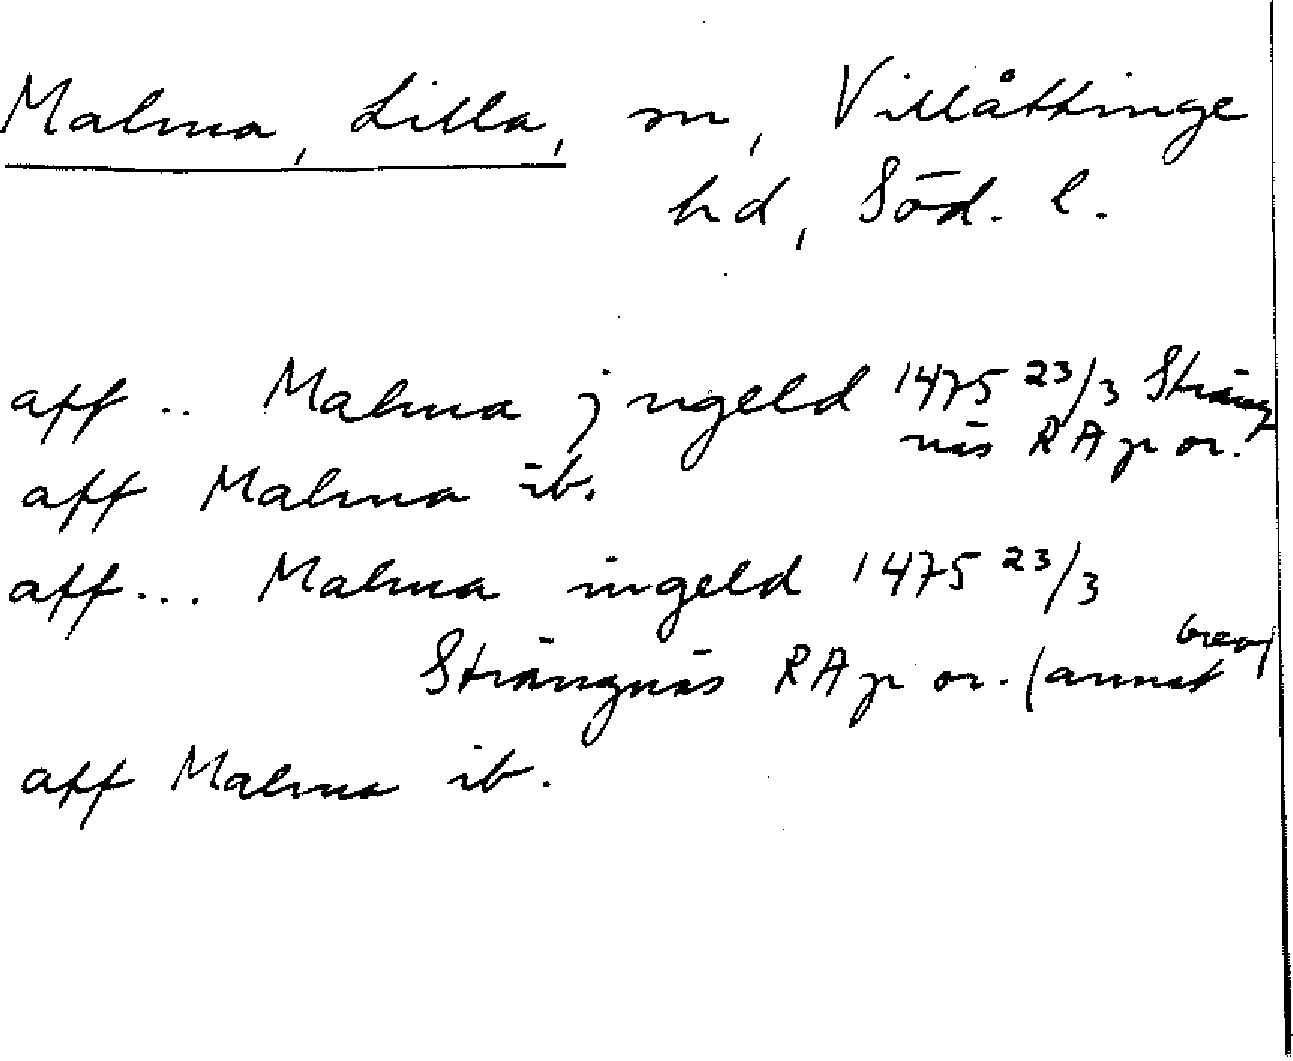 Malma, Lilla, sn, Villåttinge
hd, Söd. l.
aff .. Malma j ngeld 1475 23/3 Sträng
näs RA p or.
aff Malma ib.
aff ... Malma ingeld 1475 23/3
Strängnäs RA p or. (annat brev)
aff Malma ib.